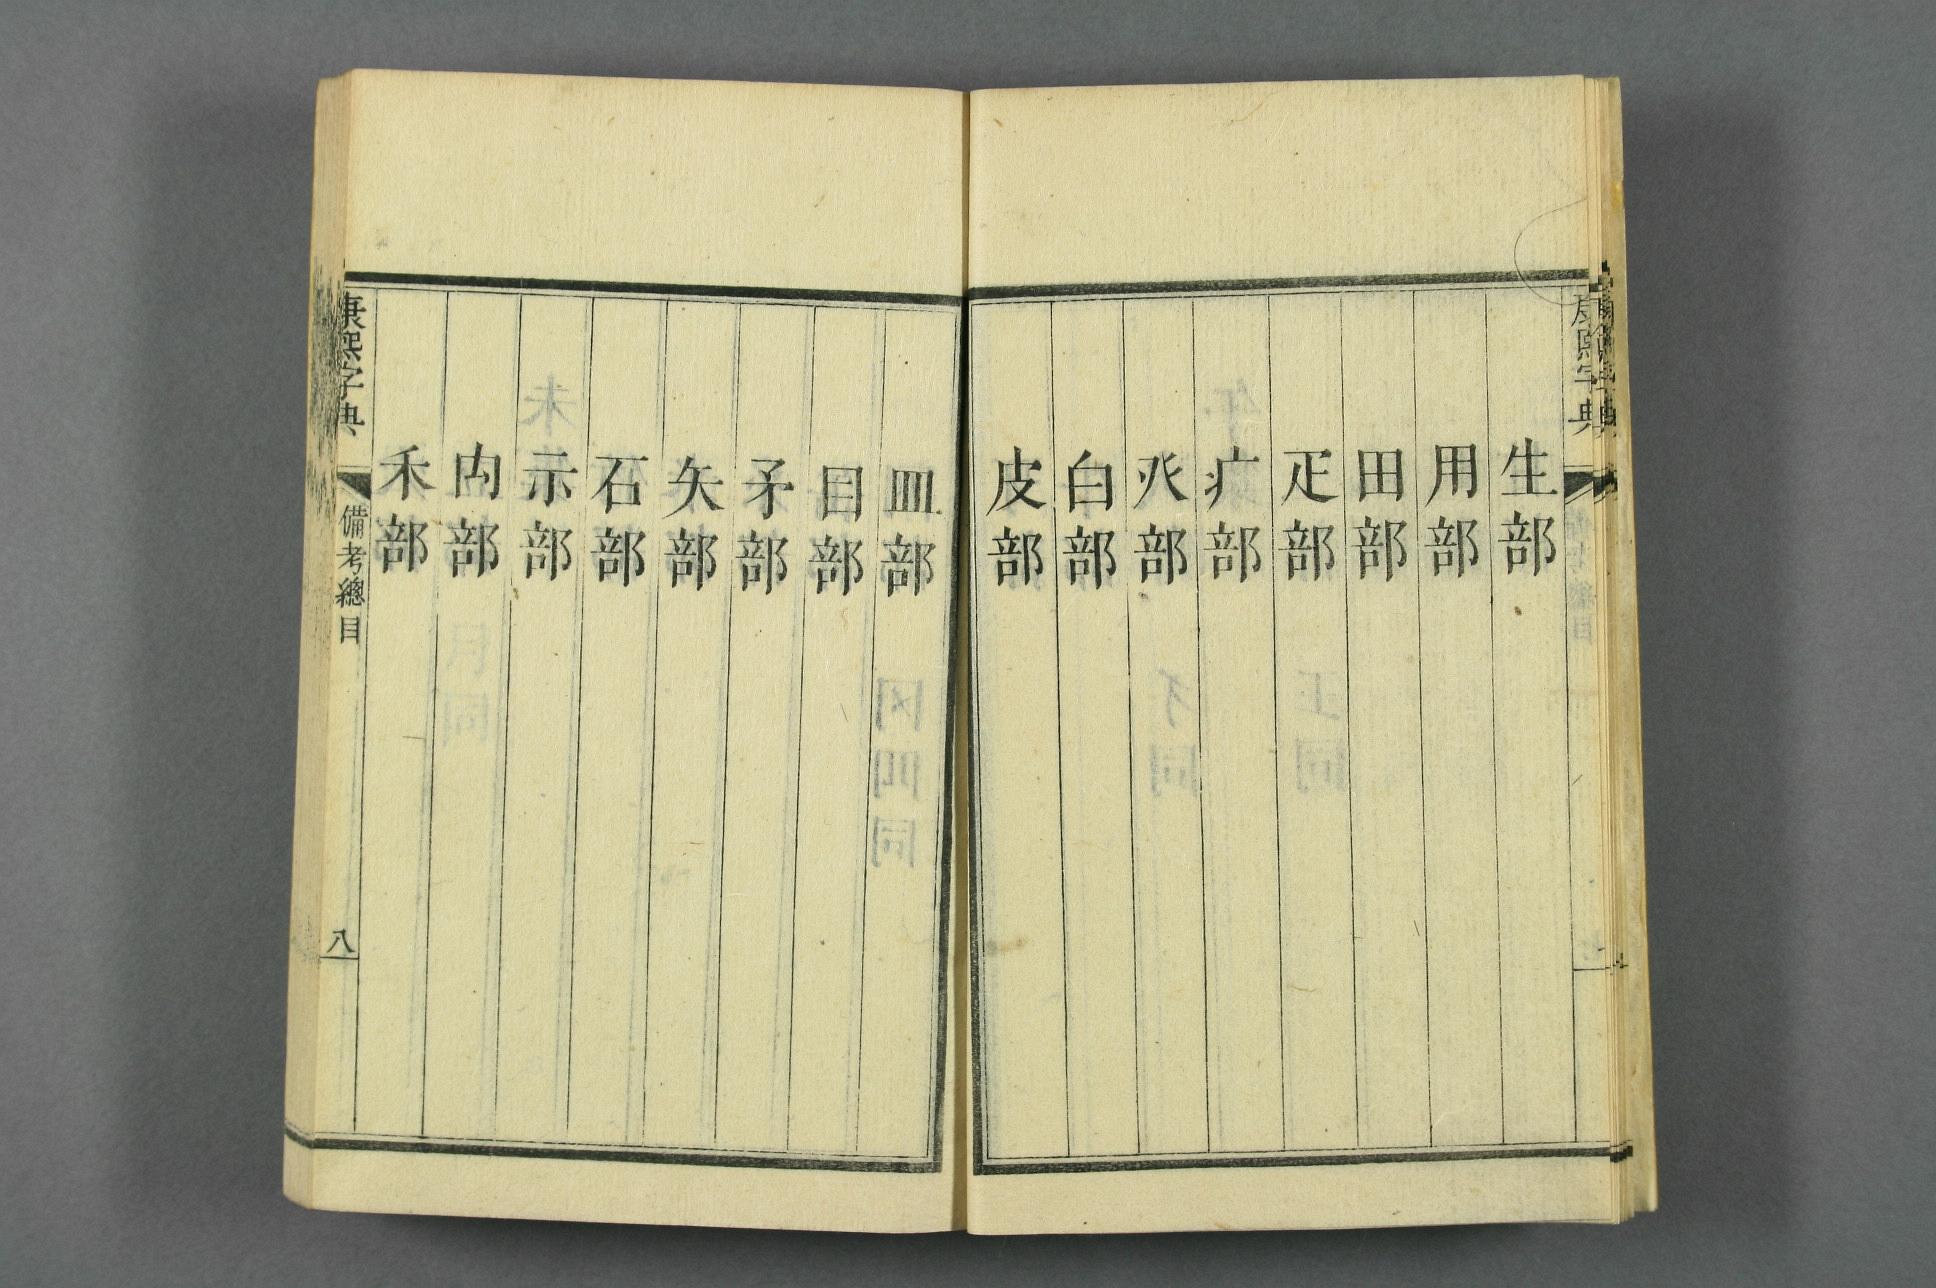 康熙字典
生部
用部
田部
疋部
疒部
癶部
白部
皮部
皿部
目部
矛部
矢部
石部
示部
禸部
禾部
康熙字典
備考總目
八